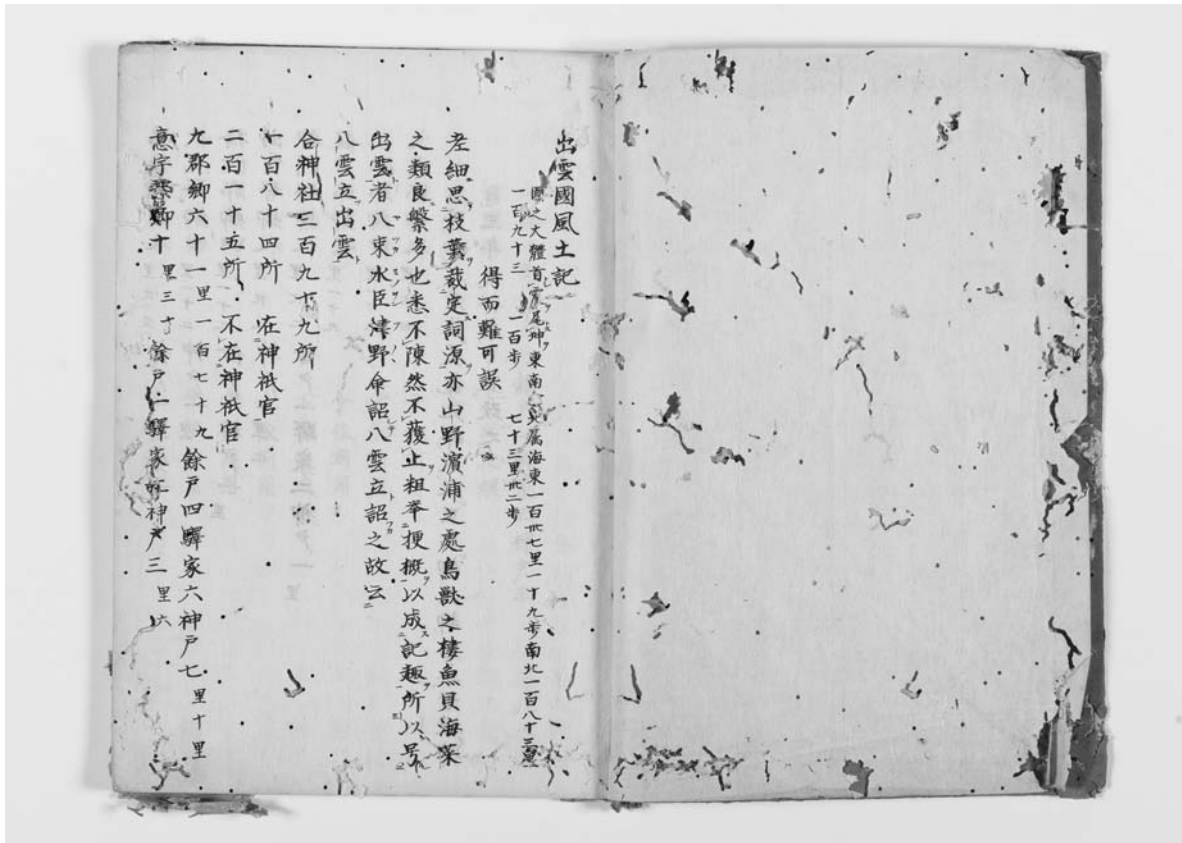 出雲國風土記
國之大體首震尾坤東南 属海東一百卅七里一十九歩南北一百八十三里
一百九十三 一百歩 七十三里卅二歩
得而難可誤
老細思枝葉裁定詞源亦山野濱浦之處鳥獣之棲魚貝海菜
之類良繁多也悉不陳然不獲止粗挙梗概以成記趣所以号
出雲者八束水臣津野命詔八雲立詔之故云
八雲立出雲
合神社三百九十九所
一百八十四所 在神祇官
二百一十五所 不在神祇官
九郡郷六十一里一百七十九 餘戸四驛家六神戸七 里十里
意宇郡郷十一里三十 餘戸一驛家 神戸三 里六